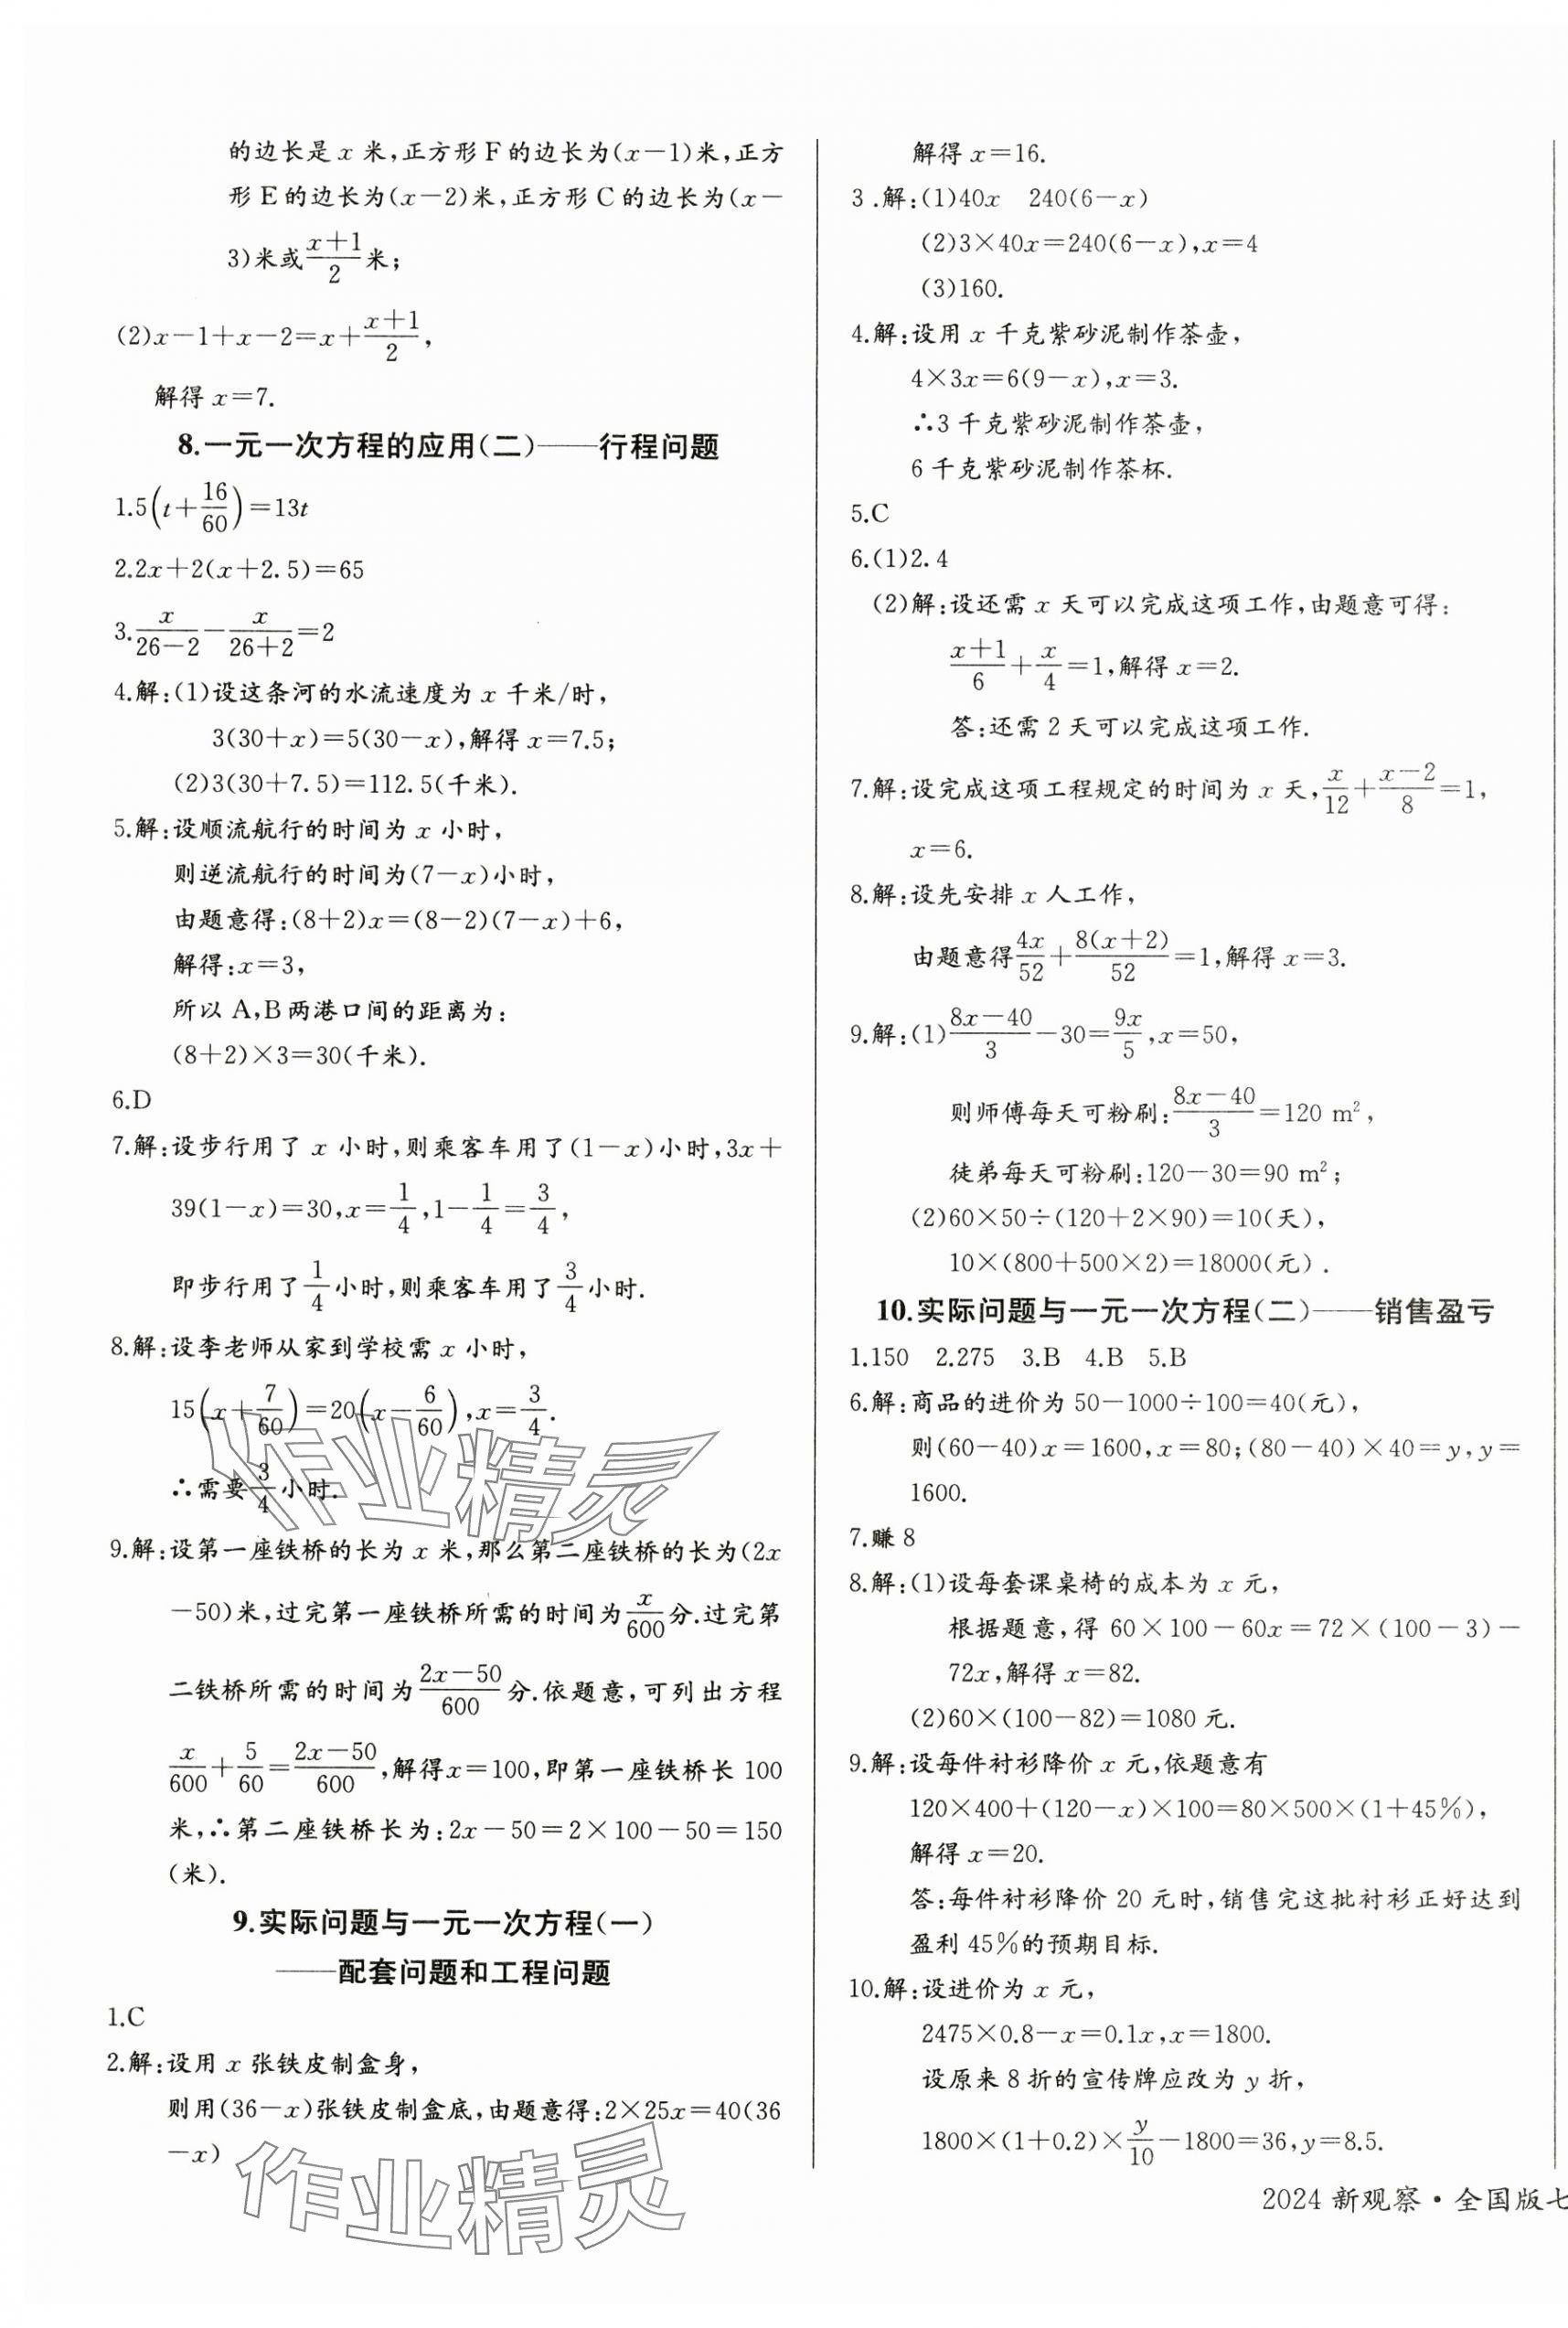 的边长是 x 米,正方形F的边长为(x-1)米,正方
形E的边长为(x-2)米,正方形C的边长为(x-
3)米或(x+1)/2米;
(2)x-1+x-2=x+(x+1)/2,
解得 x=7.
8.一元一次方程的应用(二)——行程问题
1.5(t+16/60)=13t
2.2x+2(x+2.5)=65
3.x/(26-2)-x/(26+2)=2
4.解:(1)设这条河的水流速度为 x 千米/时,
3(30+x)=5(30-x),解得 x=7.5;
(2)3(30+7.5)=112.5(千米).
5.解:设顺流航行的时间为 x 小时,
则逆流航行的时间为(7-x)小时,
由题意得:(8+2)x=(8-2)(7-x)+6,
解得:x=3,
所以 A,B两港口间的距离为:
(8+2)×3=30(千米).
6.D
7.解:设步行用了 x 小时,则乘客车用了(1-x)小时,3x+
39(1-x)=30,x=1/4,1-1/4=3/4,
即步行用了1/4小时,则乘客车用了3/4小时.
8.解:设李老师从家到学校需 x 小时,
15(x+7/60)=20(x-6/60),x=3/4.
∴需要3/4小时.
9.解:设第一座铁桥的长为 x 米,那么第二座铁桥的长为(2x
-50)米,过完第一座铁桥所需的时间为x/600分.过完第
二铁桥所需的时间为(2x-50)/600分.依题意,可列出方程
x/600+5/60=(2x-50)/600,解得x=100,即第一座铁桥长 100
米,∴第二座铁桥长为:2x-50=2×100-50=150
(米).
9.实际问题与一元一次方程(一)
——配套问题和工程问题
1.C
2.解:设用 x 张铁皮制盒身,
则用(36-x)张铁皮制盒底,由题意得:2×25x=40(36
-x)
解得 x=16.
3.解:(1)40x 240(6-x)
(2)3×40x=240(6-x),x=4
(3)160.
4.解:设用 x 千克紫砂泥制作茶壶,
4×3x=6(9-x),x=3.
∴3 千克紫砂泥制作茶壶,
6 千克紫砂泥制作茶杯.
5.C
6.(1)2.4
(2)解:设还需 x 天可以完成这项工作,由题意可得:
(x+1)/6+x/4=1,解得 x=2.
答:还需 2 天可以完成这项工作.
7.解:设完成这项工程规定的时间为 x 天,x/12+(x-2)/8=1,
x=6.
8.解:设先安排 x 人工作,
由题意得4x/52+8(x+2)/52=1,解得 x=3.
9.解:(1)(8x-40)/3-30=9x/5,x=50,
则师傅每天可粉刷:(8x-40)/3=120 m²,
徒弟每天可粉刷:120-30=90 m²;
(2)60×50÷(120+2×90)=10(天),
10×(800+500×2)=18000(元).
10.实际问题与一元一次方程(二)——销售盈亏
1.150 2.275 3.B 4.B 5.B
6.解:商品的进价为 50-1000÷100=40(元),
则(60-40)x=1600,x=80;(80-40)×40=y,y=
1600.
7.赚 8
8.解:(1)设每套课桌椅的成本为 x 元,
根据题意,得 60×100-60x=72×(100-3)-
72x,解得 x=82.
(2)60×(100-82)=1080 元.
9.解:设每件衬衫降价 x 元,依题意有
120×400+(120-x)×100=80×500×(1+45%),
解得 x=20.
答:每件衬衫降价 20 元时,销售完这批衬衫正好达到
盈利 45%的预期目标.
10.解:设进价为 x 元,
2475×0.8-x=0.1x,x=1800.
设原来 8 折的宣传牌应改为 y 折,
1800×(1+0.2)×y/10-1800=36,y=8.5.
2024 新观察·全国版七
作业精灵
作业精灵